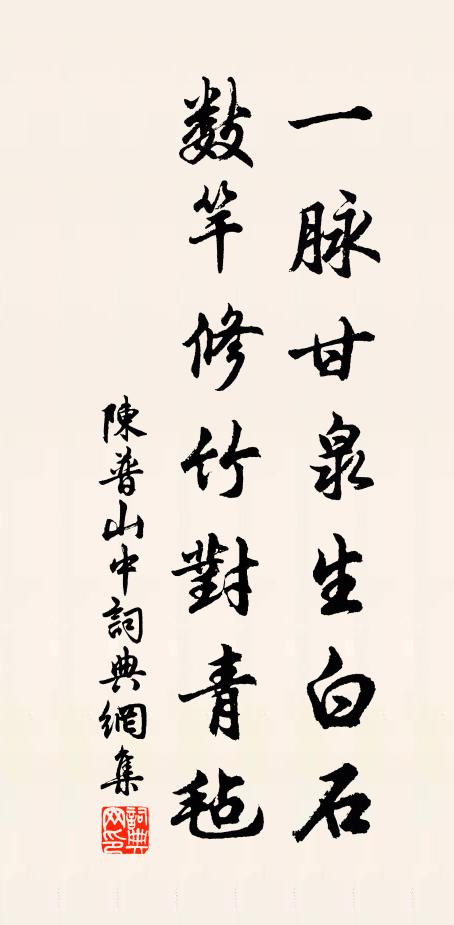 一脉甘泉生白石
数竿修竹對青毡
陳普山中詞典網集
詞典網印